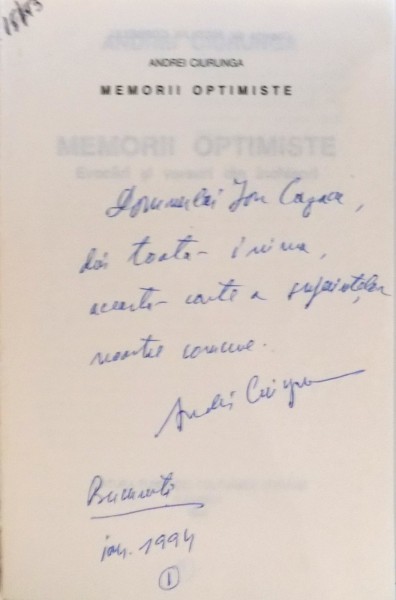 15/53
ANDREI CIURUNGA
MEMORII OPTIMISTE
Domnului Ion
din toată inima,
această carte a suferințelor
noastre comune.
Andrei Ciurunga
București
ian. 1994
1